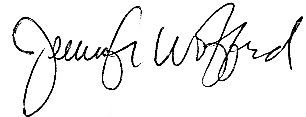 Jennifer Wofford